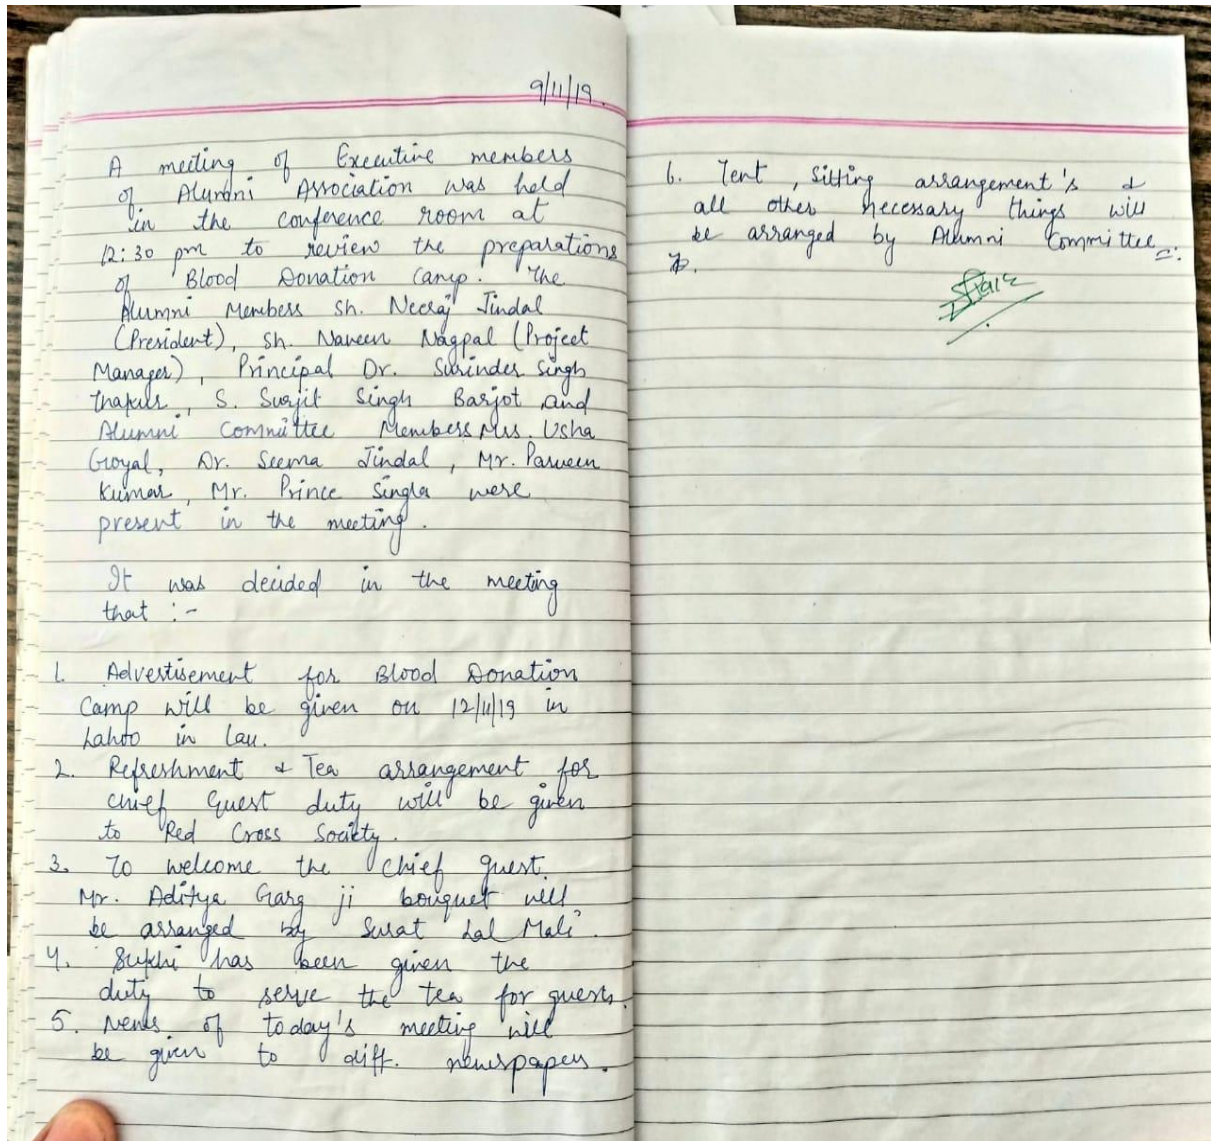 9/11/19.
A meeting of Executive members
of Alumni Association was held
in the conference room at
12:30 pm to review the preparations
of Blood Donation Camp. The
Alumni Members Sh. Neeraj Jindal
(President), Sh. Naveen Nagpal (Project
Manager), Principal Dr. Surinder Singh
Thakur, S. Surjit Singh Barjot and
Alumni Committee Members Mrs. Usha
Goyal, Dr. Seema Jindal, Mr. Parveen
Kumar, Mr. Prince Singla were
present in the meeting.
It was decided in the meeting
that :-
1. Advertisement for Blood Donation
Camp will be given on 12/11/19 in
in Law.
2. Refreshment & Tea arrangement for
chief Guest duty will be given
to Red Cross Society.
3. To welcome the chief guest.
Mr. Aditya Garg ji bouquet will
be arranged by Surat Lal Mali.
4. has been given the
duty to serve the tea for guests.
5. News of today's meeting will
be given to diff. newspapers.
6. Tent, Sitting arrangement's &
all other necessary things will
be arranged by Alumni Committee.